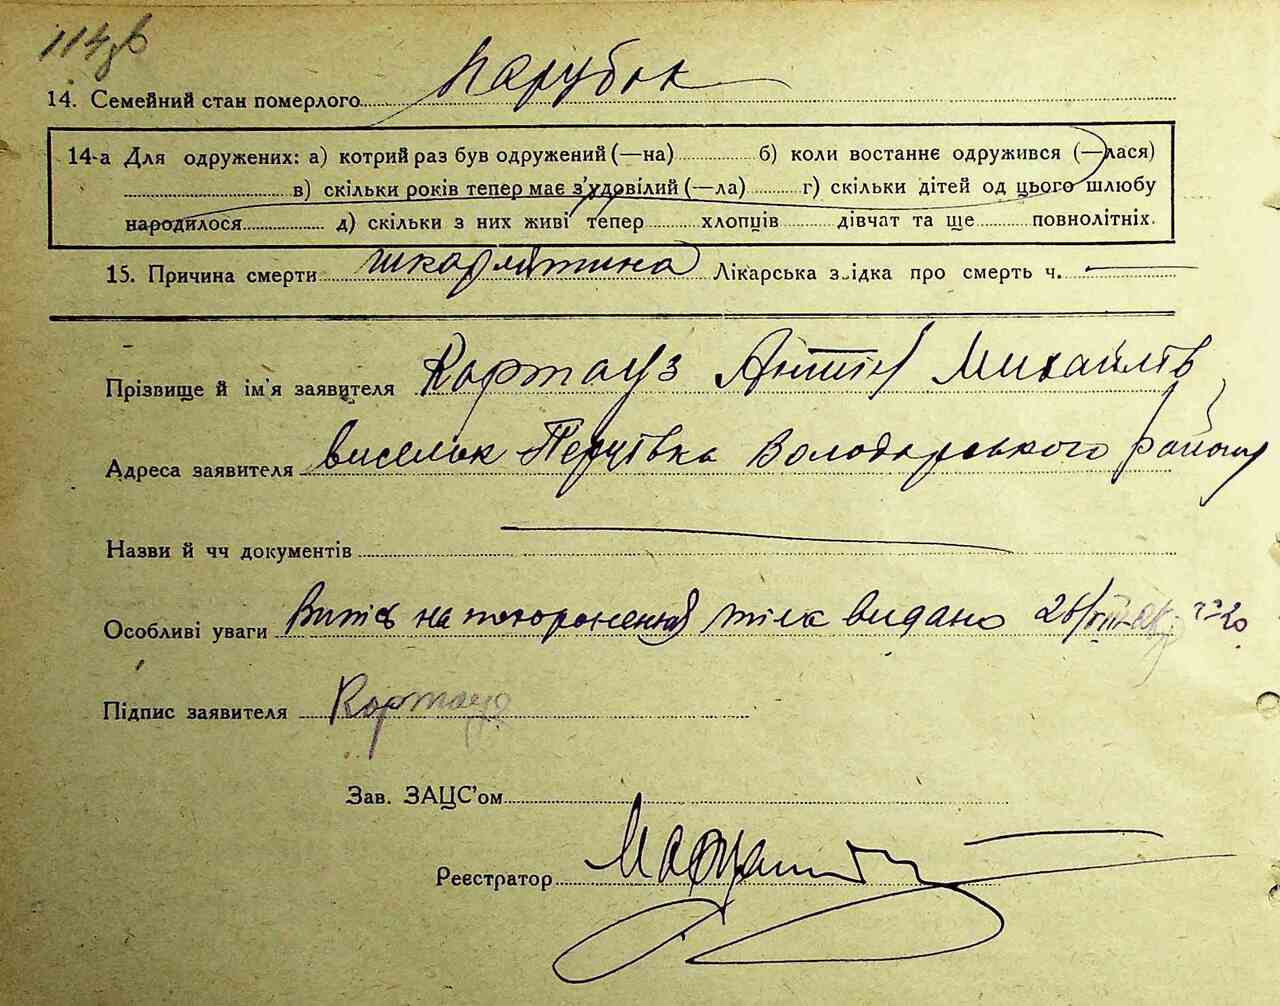 114зв
14. Семейний стан померлого парубок
14-а Для одружених: а) котрий раз був одружений (—на) б) коли востаннє одружився (—лася)
в) скільки років тепер має з'удовілий (—ла) г) скільки дітей од цього шлюбу
народилося д) скільки з них живі тепер хлопців дівчат та ще повнолітніх.
15. Причина смерти шкарлятина Лікарська з ідка про смерть ч. —
Прізвище й ім'я заявителя Картауз Антін Михайлів
Адреса заявителя виселок Перцівка Володарського району
Назви й чч документів —
Особливі уваги Витяг на похоронення тіла видано 26/VIII
Підпис заявителя Картауз
Зав. ЗАЦС'ом
Реєстратор